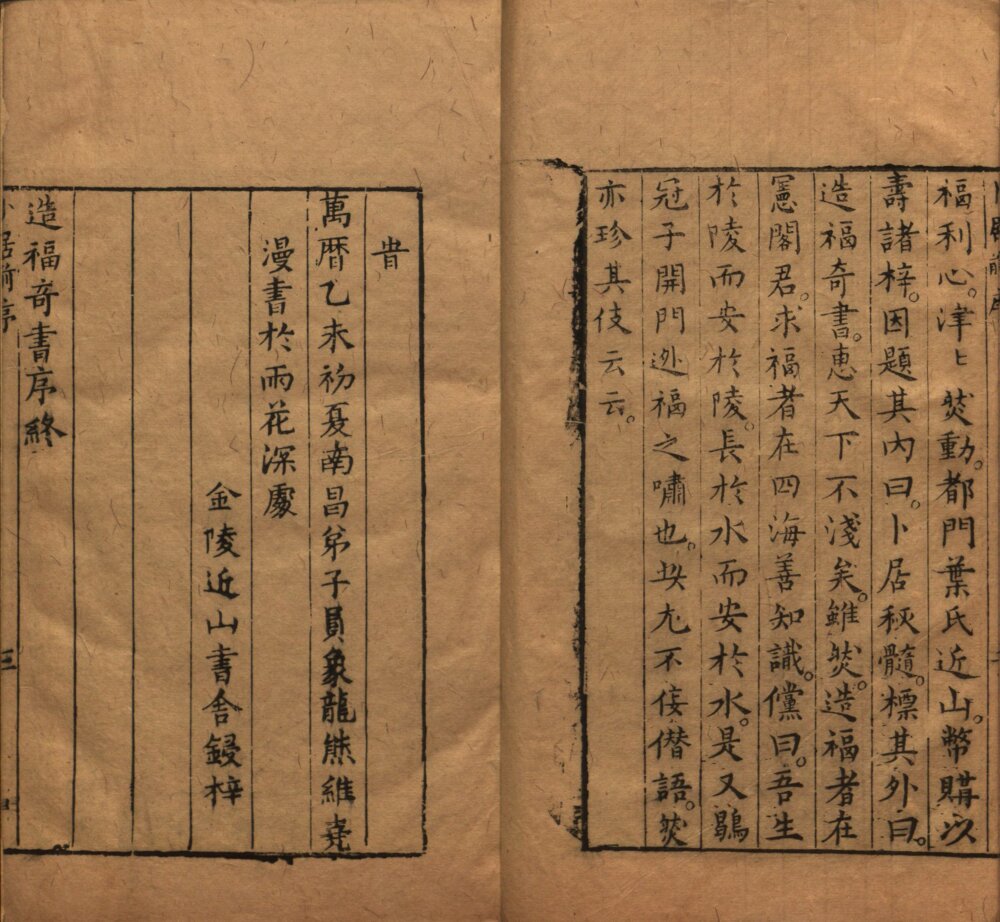 福利心。津〻焂動。都門葉氏近山。幣購以
壽諸梓。因題其内曰。卜居秘髓。標其外曰。
造福奇書。惠天下不淺矣。雖然。造福者在
憲閣君。求福者在四海善知識。儻曰。吾生
於陵而安於陵。長於水而安於水。是又鶡
冠子開門逃福之嘯也。此尤不佞僣語。然
亦珍其伎云云。
旹
萬曆乙未初夏南昌弟子員象龍熊維堯
漫書於雨花深處
金陵近山書舍鋟梓
造福奇書序終
卜居前序
三